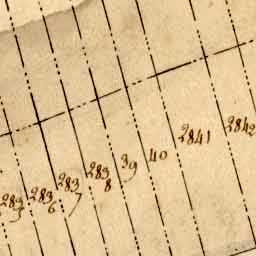 2835
2836
2837
2838
39
40
2841
2842